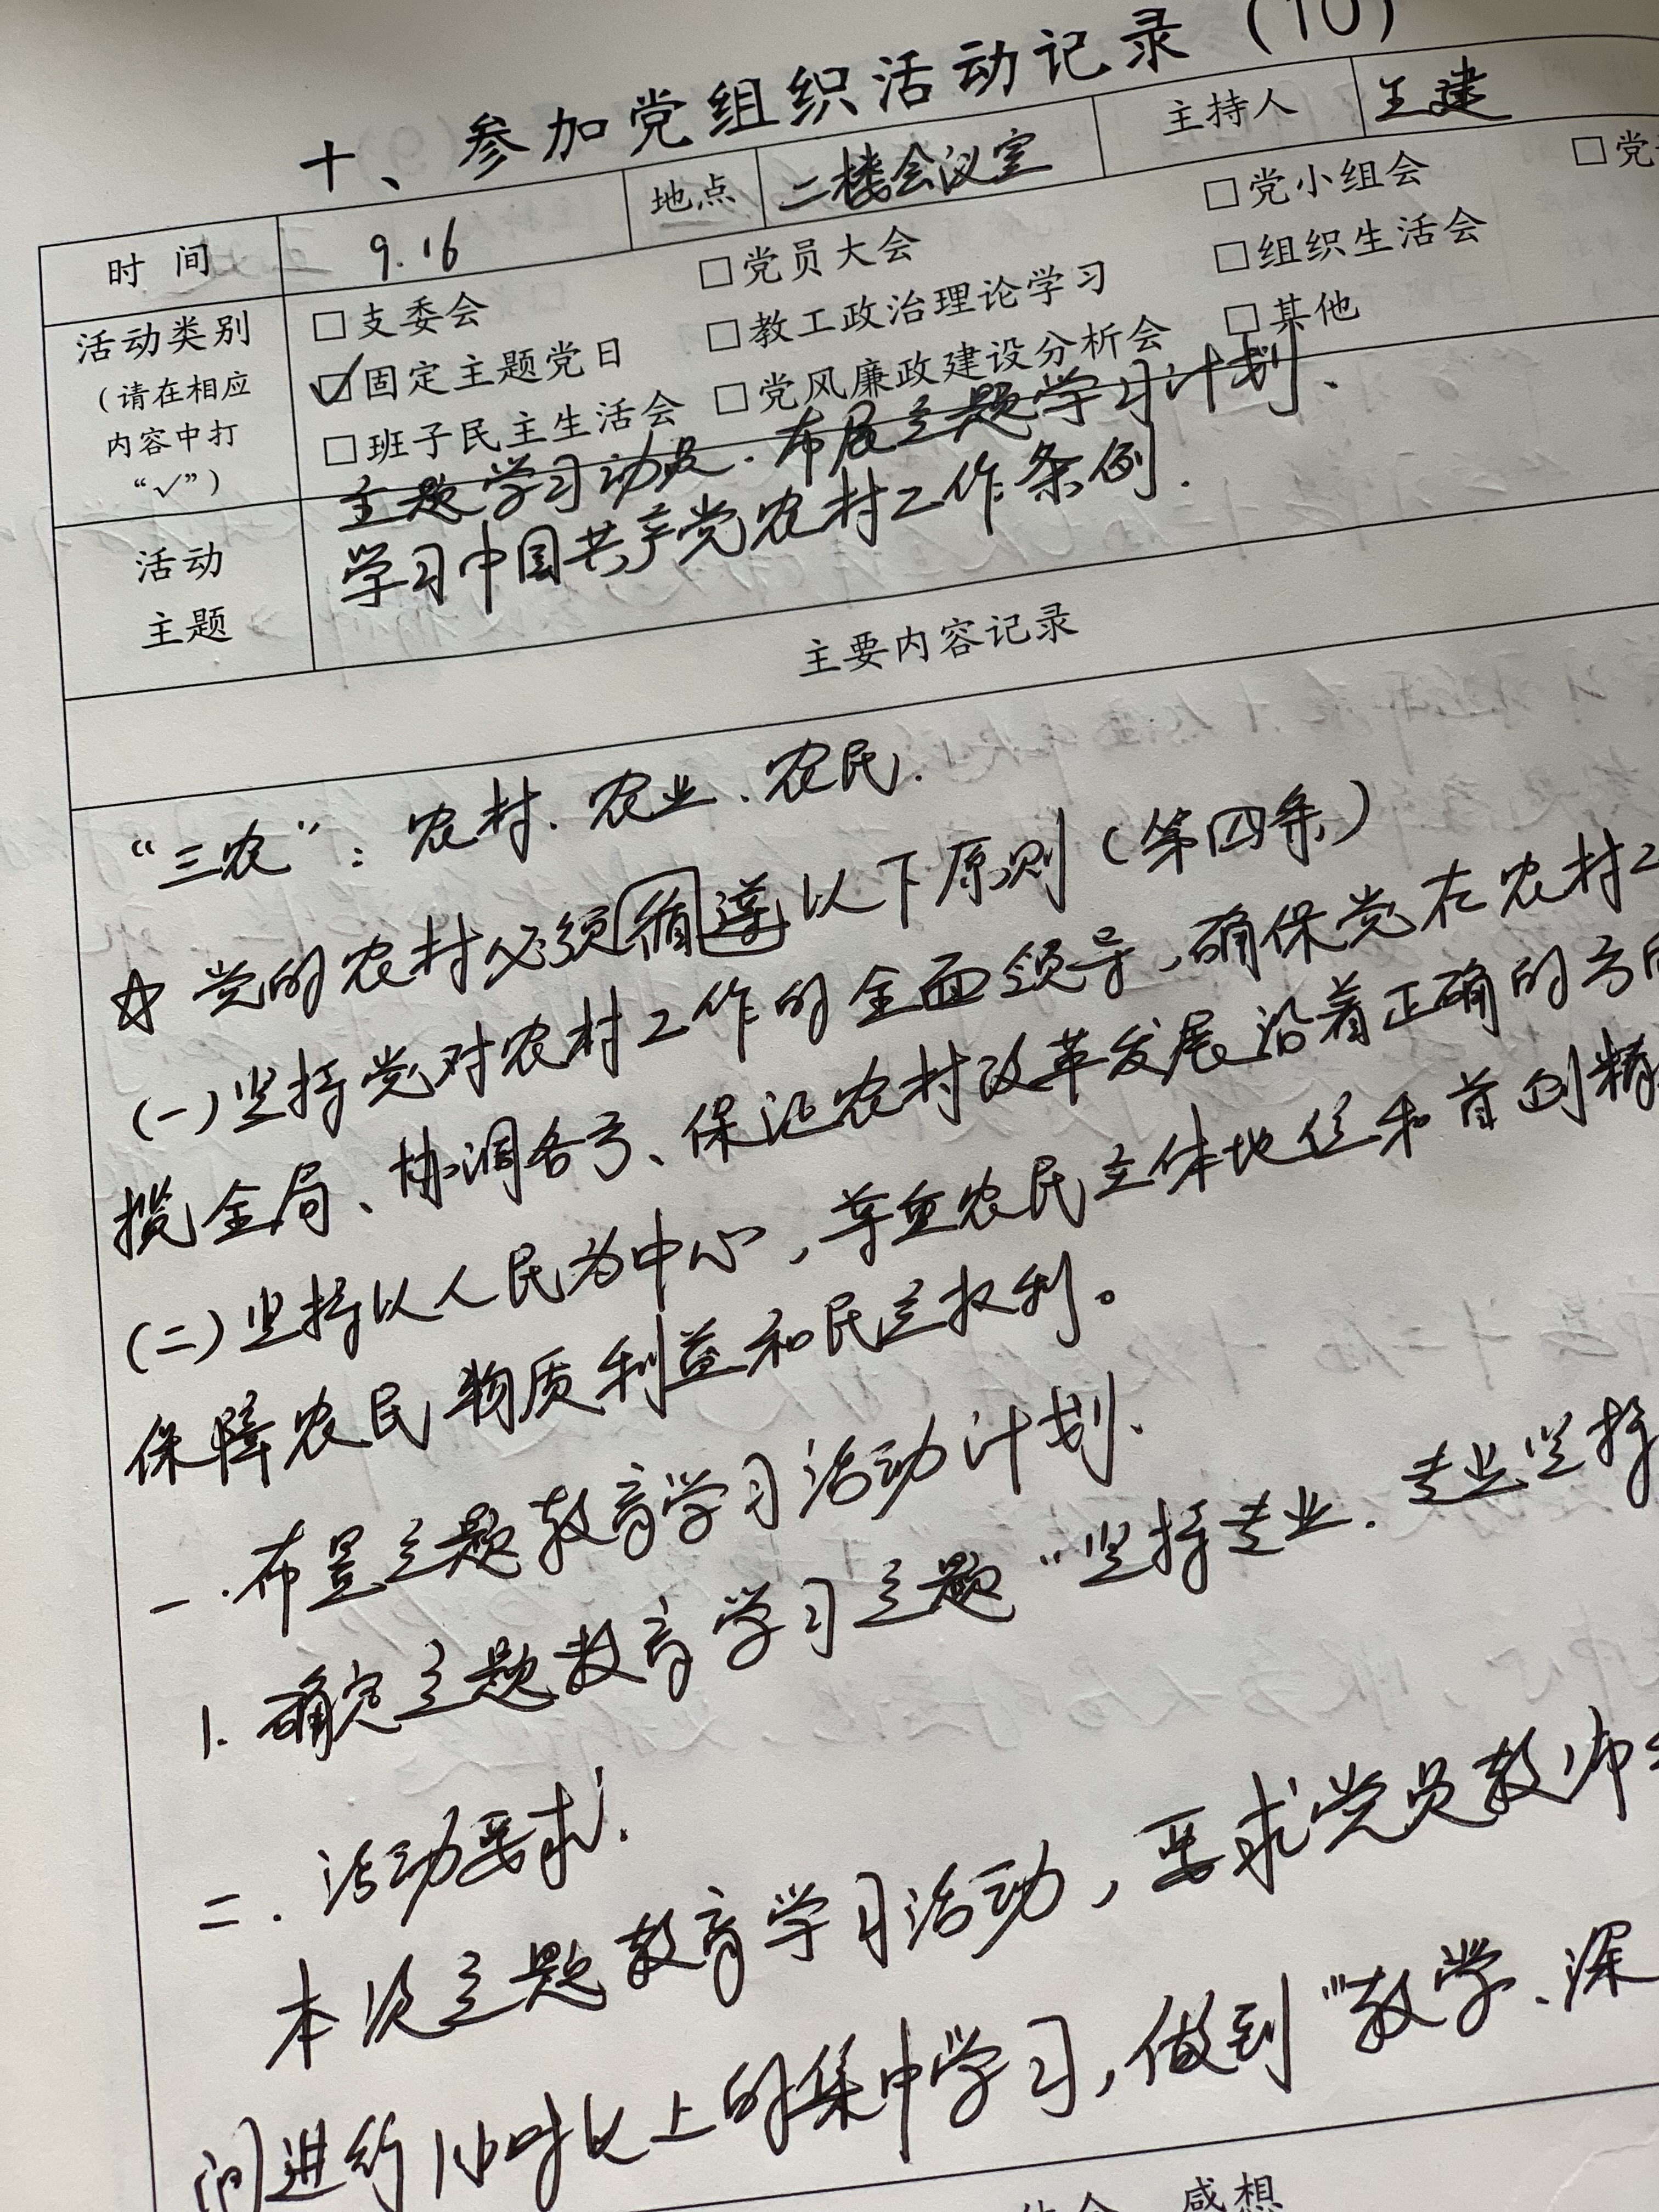 十、参加党组织活动记录（10）
时 间 9.16 地点 二楼会议室 主持人 王建
活动类别
（请在相应
内容中打
“√”）
□支委会 □党员大会 □党小组会 □党
☑固定主题党日 □教工政治理论学习 □组织生活会
□班子民主生活会 □党风廉政建设分析会 □其他
活动
主题
主题学习动员.布展主题学习计划、
学习中国共产党农村工作条例.
主要内容记录
“三农”：农村、农业、农民.
☆ 党的农村必须循遵以下原则（第四条）
(一)坚持党对农村工作的全面领导,确保党在农村工
揽全局、协调各方、保证农村改革发展沿着正确的方向
(二)坚持以人民为中心,尊重农民主体地位和首创精
保障农民物质利益和民主权利。
一.布置主题教育学习活动计划.
1.确定主题教育学习主题“坚持专业.专业坚持
二.活动要求.
本次主题教育学习活动,要求党员教师
间进行1小时以上的集中学习,做到“教学、深
感想